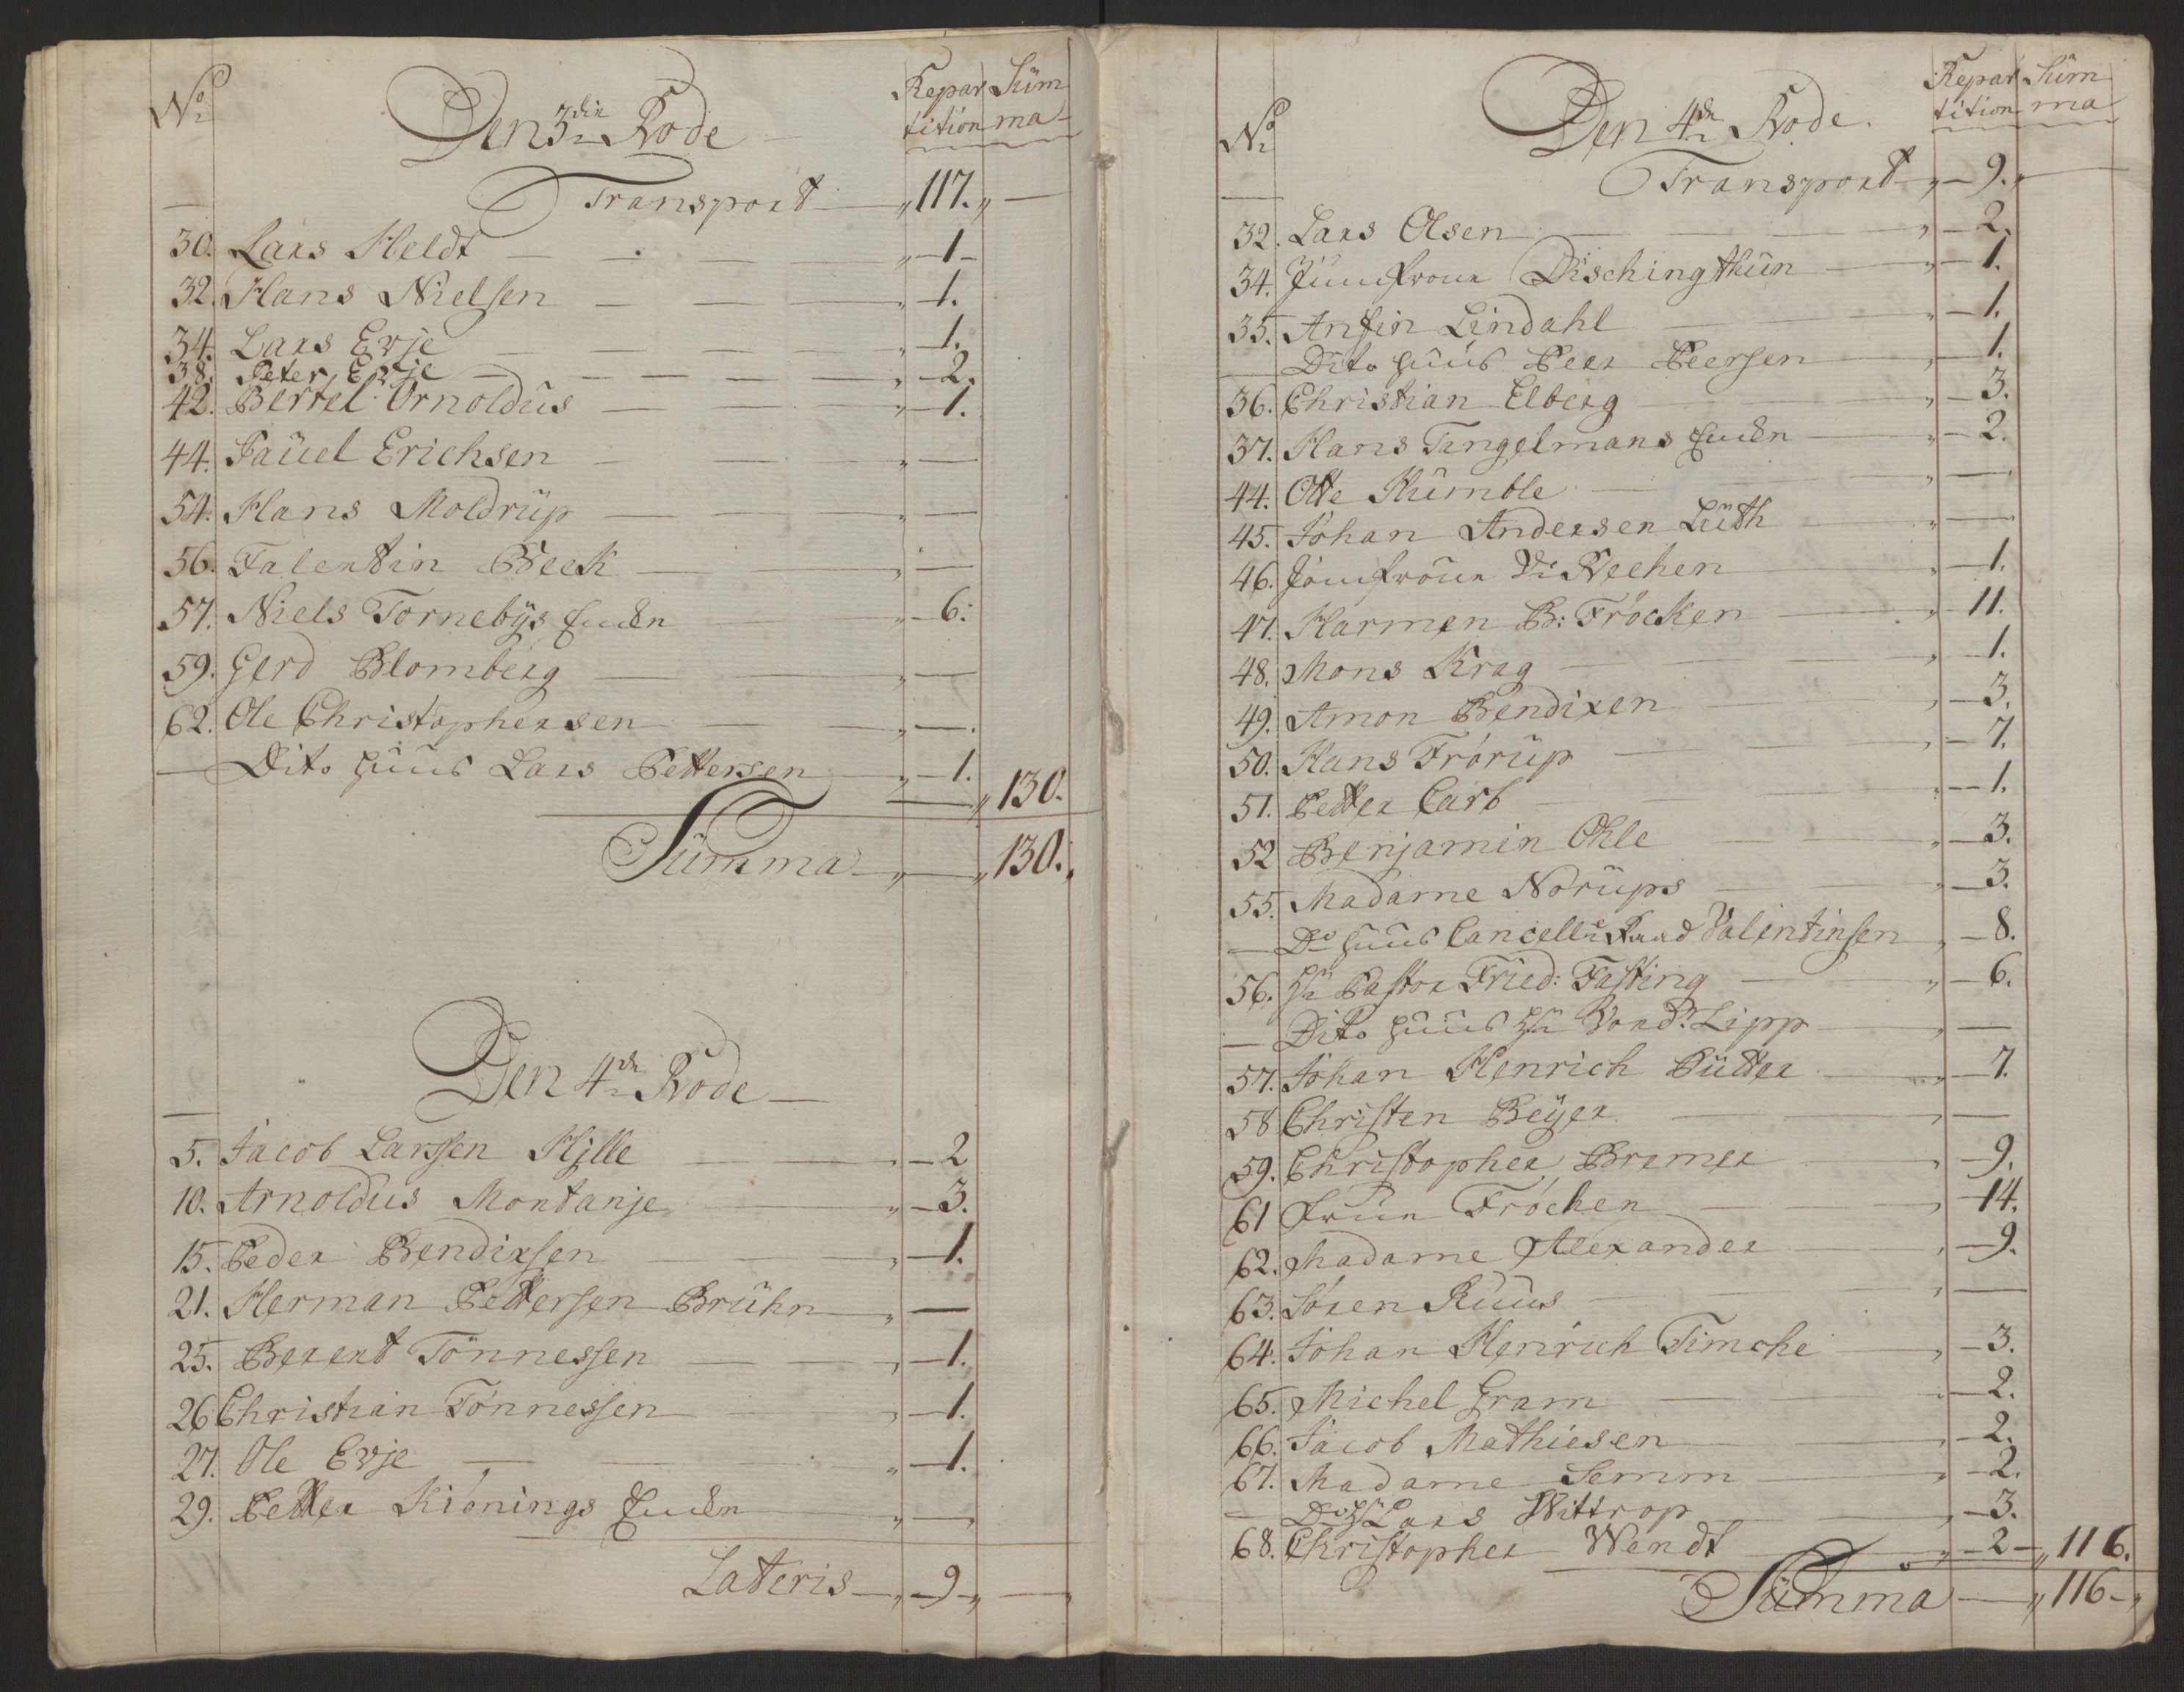 No Den 3die Rode Repartition Summa
Transport 117.
30. Lars Heldt 1
32. Hans Nielsen 1.
34. Lars Evje 1.
38. Peter Evje 2.
42. Bertel Arnoldus 1.
44. Pauel Erichsen —
54. Hans Moldrüp —
56. Falentin Beck —
57. Niels Tornebÿs Enken 6.
59. Gerd Blomberg —
62. Ole Christophersen —
Dito huus Lars Pettersen 1. 130.
Summa 130.
Den 4de Rode
5. Jacob Larsen Hille 2
10. Arnoldus Montanje 3.
15. Peder Bendixsen 1.
21. Herman Pettersen Brühn —
25. Berent Tönnessen 1.
26 Christian Tönnessen 1.
27. Ole Evje 1.
29. Petter Kiönings Enken —
Lateris 9
No Den 4de Rode. Repartition Summa
Transport 9.
32. Lars Olsen 2.
34. Jumfrour Dischingthün 1.
35. Anfin Lindahl 1.
Dito huus Peer Peersen 1.
36. Christian Elberg 3.
37. Hans Tangelmans Enken 2.
44. Otte Kümble —
45. Johan Andersen Lüth —
46. Jomfrour Vechen 1.
47. Harmen B: Fröcken 11.
48. Mons Krag 1.
49. Amon Bendixen 3.
50. Hans Frörüp 7.
51. Petter Carb 1.
52 Benjamin Ohle 3.
55. Madame Norüps 3.
Do huus Cancellie Raad Valentinsen 8.
56. Hr Pastor Fried: Fasting 6.
Dito huus Hr Lipp —
57. Johan Henrich Pütter 7.
58 Christen Beÿer —
59. Christopher Bremer 9.
61 Fruen Fröchen 14.
62. Madame Alexander 9.
63. Sören Ruus —
64. Johan Henrich Timche 3.
65. Michel Gram 2.
66. Jacob Mathiesen 2.
67. Madame Semm 2.
Do Hr Lars Wittrop 3.
68. Christopher Wendt 2 116.
Summa 116